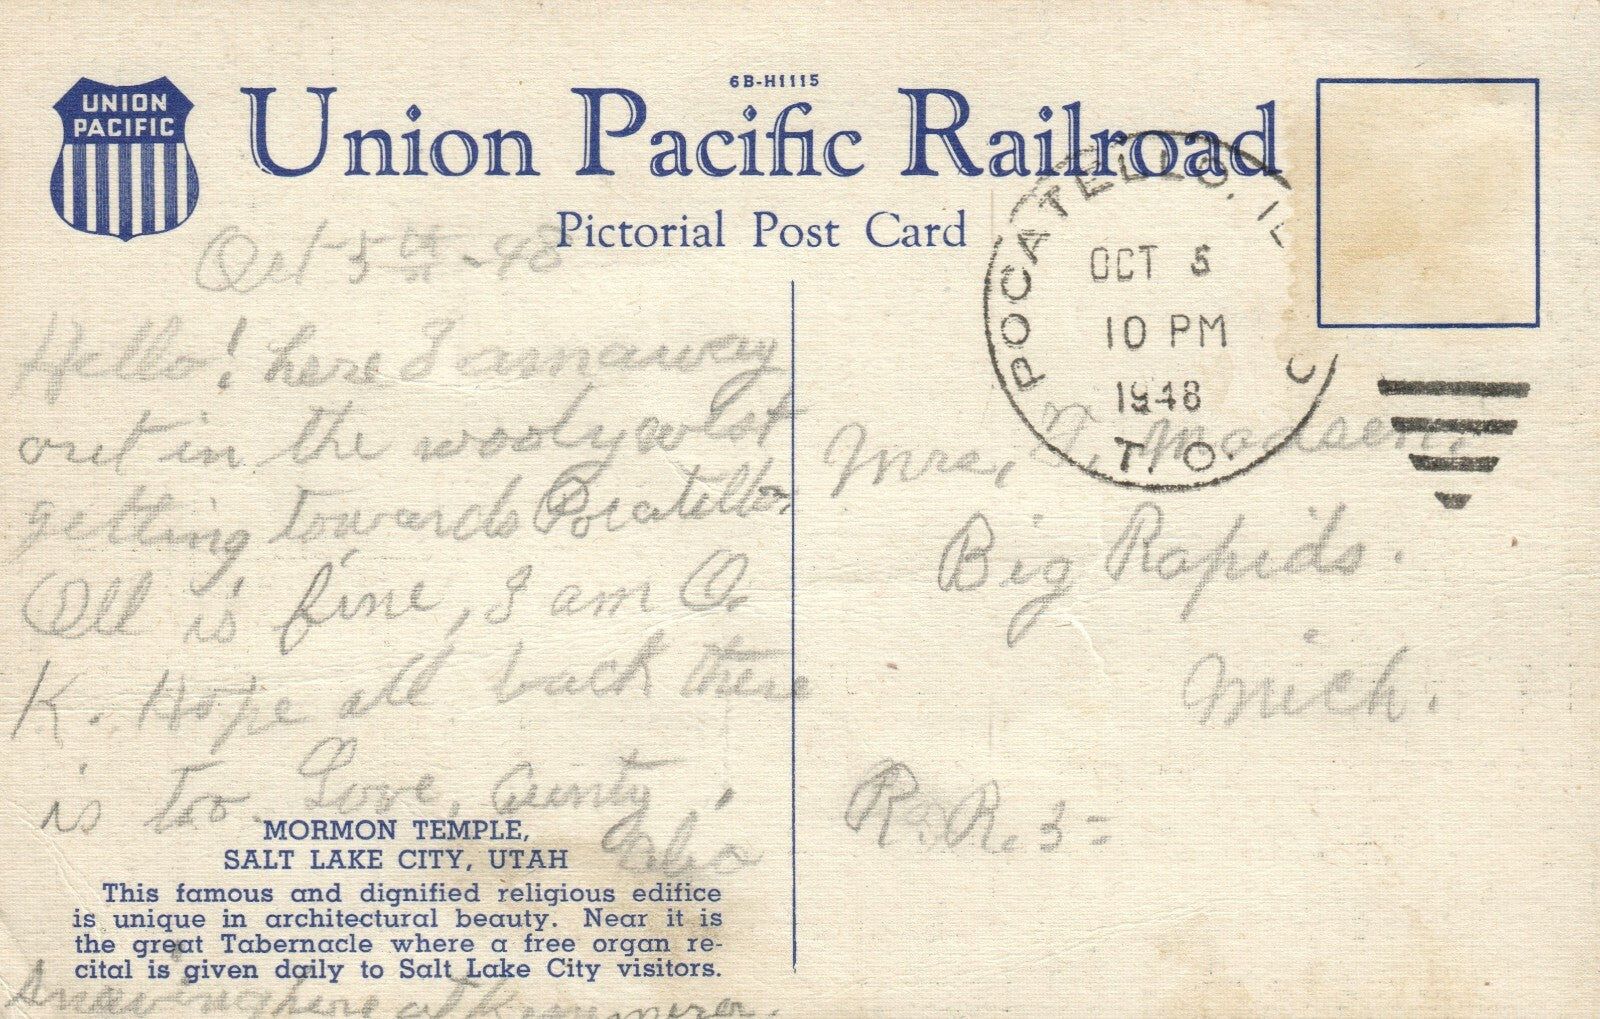 6B-H1115
UNION
PACIFIC
Union Pacific Railroad
Pictorial Post Card
POCATELLO, I
OCT 5
10 PM
1948
T. O.
Oct 5th - 48
Hello! here I am away
out in the wooly west
getting towards Pocatello,
All is fine, I am O.
K. Hope all back there
is too. Love, Aunty
MORMON TEMPLE,
SALT LAKE CITY, UTAH
This famous and dignified religious edifice
is unique in architectural beauty. Near it is
the great Tabernacle where a free organ re-
cital is given daily to Salt Lake City visitors.
Snowing here at Kemmerer.
Mrs, T. Madsen,
Big Rapids.
Mich.
R.R. 3 =